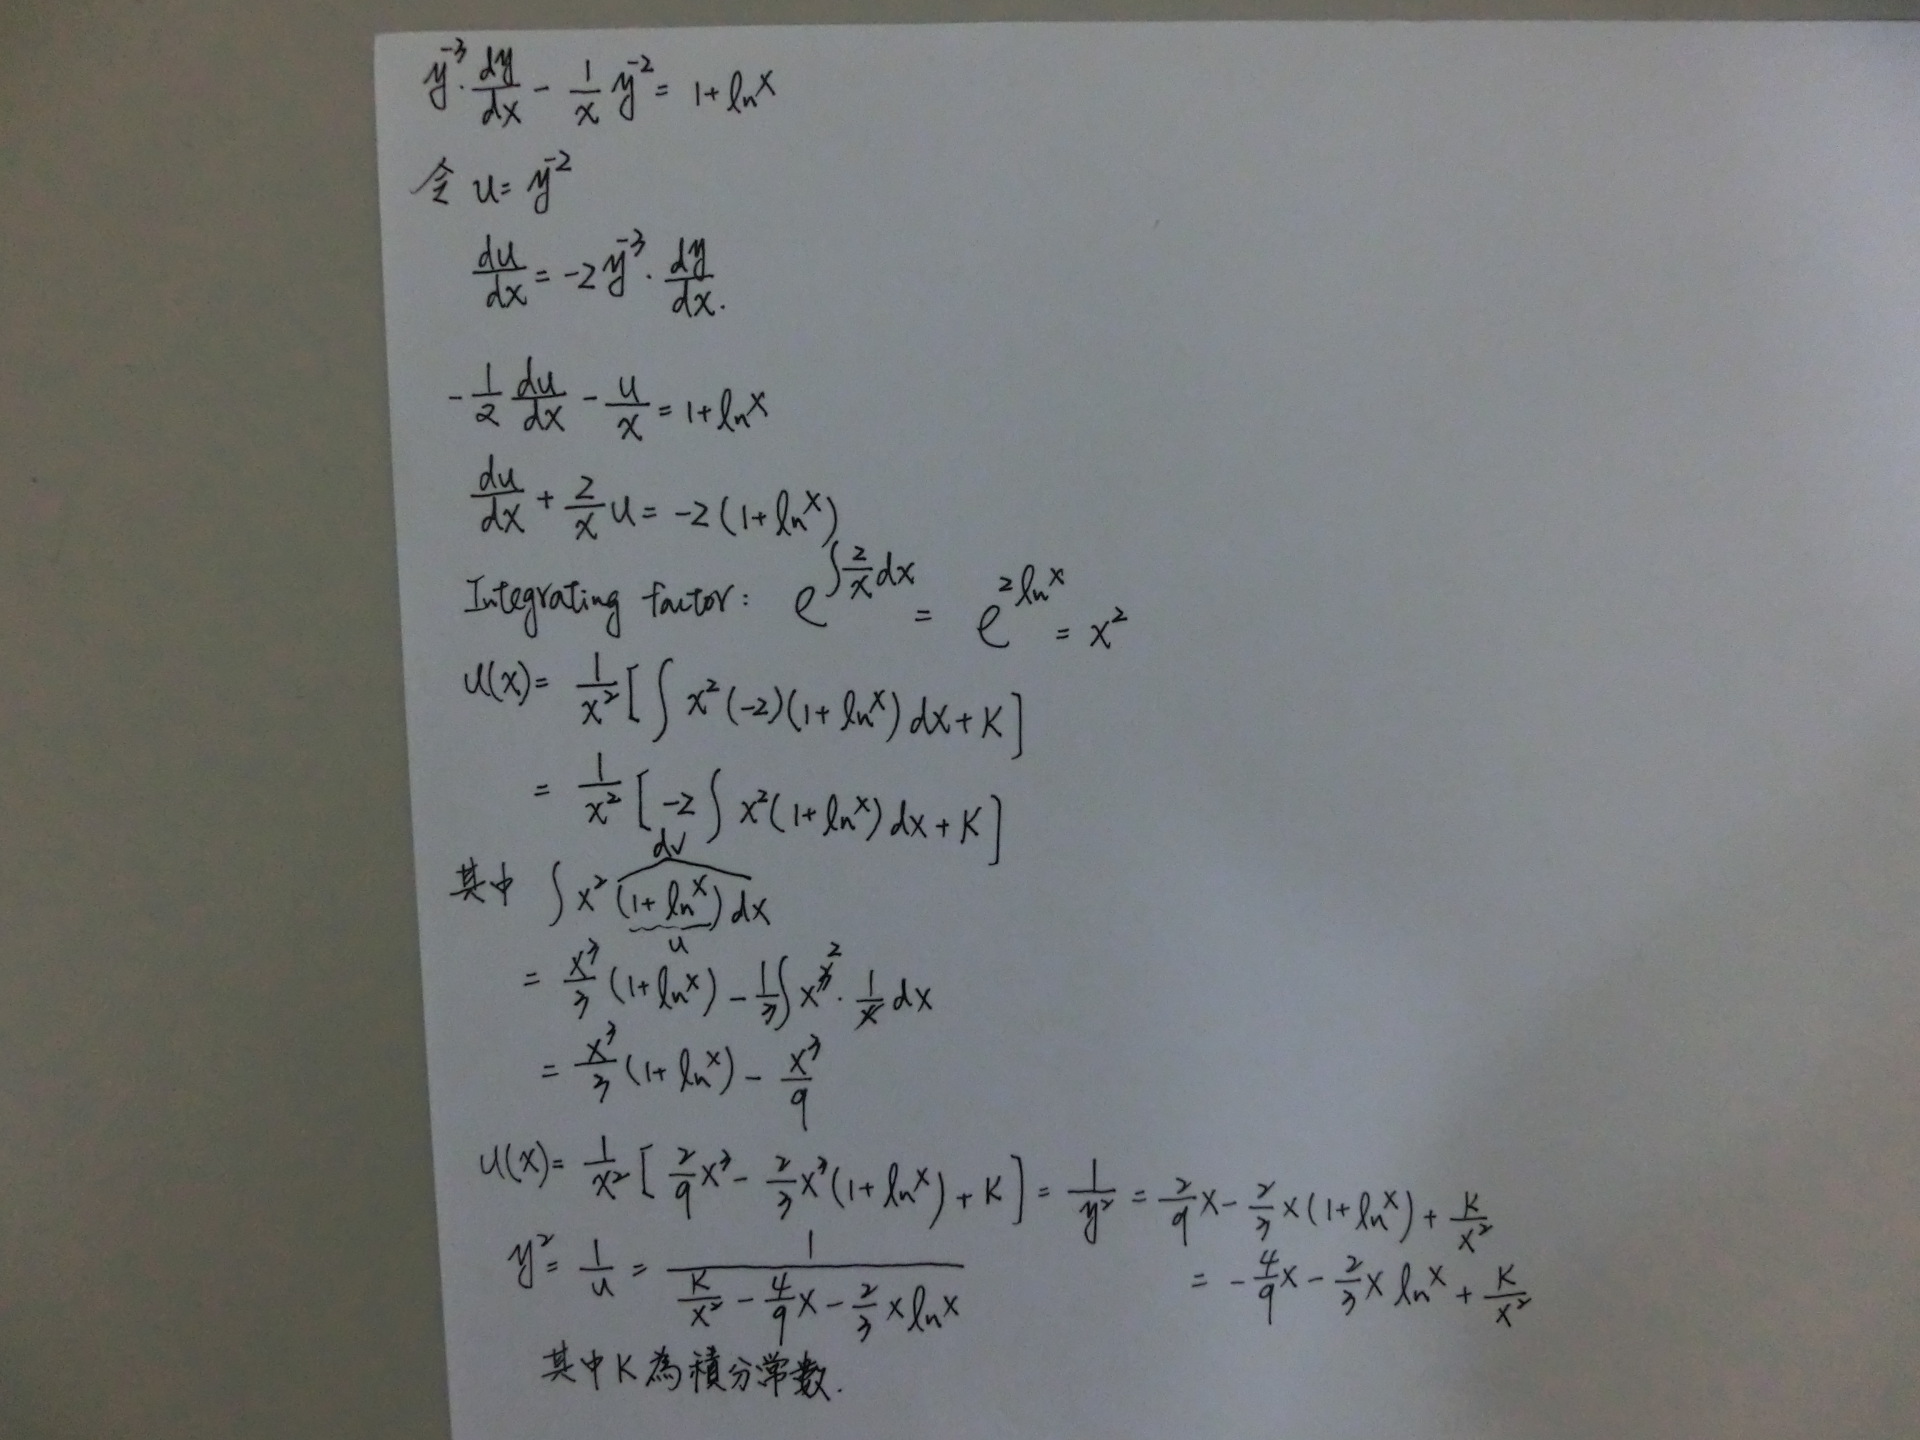 y⁻³·dy/dx - 1/x y⁻² = 1+lnx
令 u= y⁻²
du/dx = -2y⁻³·dy/dx.
-1/2 du/dx - u/x = 1+lnx
du/dx + 2/x u = -2(1+lnx)
Integrating factor: e^∫2/x dx = e^2lnx = x²
u(x)= 1/x² [∫x²(-2)(1+lnx)dx+K]
= 1/x² [-2∫x²(1+lnx)dx+K]
dv
其中 ∫x²(1+lnx)dx
u
= x³/3 (1+lnx) - 1/3∫x³² · 1/x dx
= x³/3 (1+lnx) - x³/9
u(x)= 1/x² [2/9 x³ - 2/3 x³(1+lnx)+K] = 1/y² = 2/9 x - 2/3 x(1+lnx) + K/x²
= -4/9 x - 2/3 x lnx + K/x²
y² = 1/u = 1/(K/x² - 4/9 x - 2/3 x lnx)
其中K為積分常數.